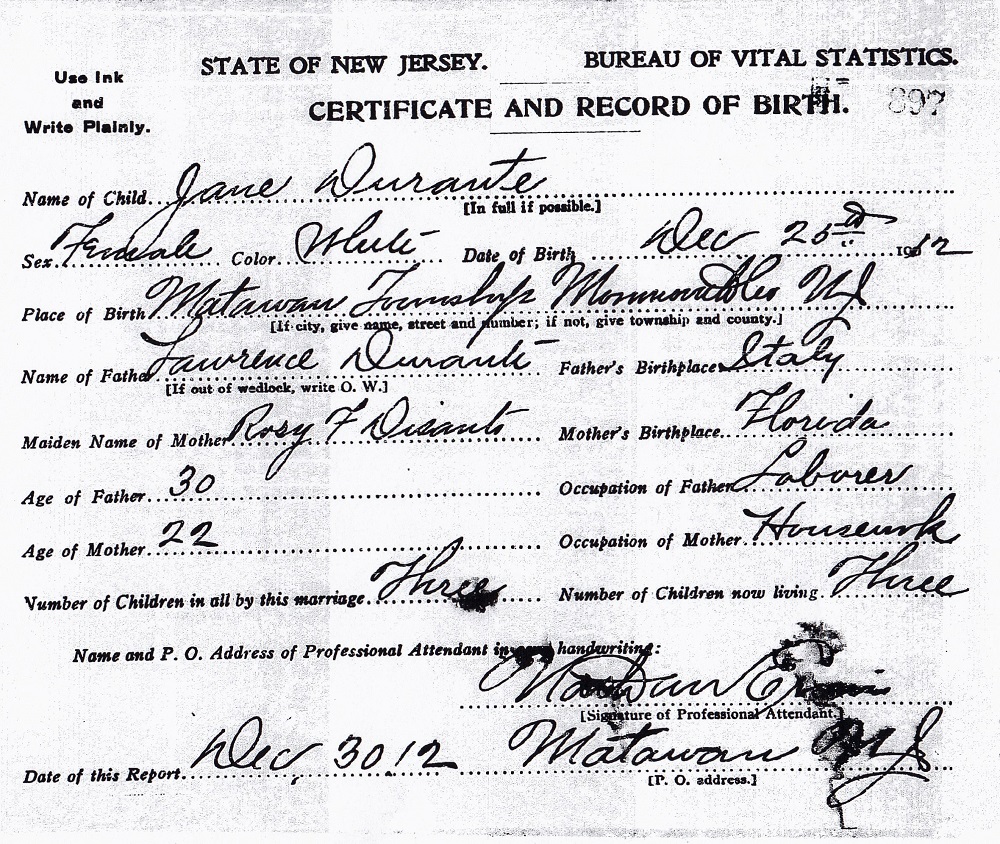 Use Ink
and
Write Plainly.
STATE OF NEW JERSEY. BUREAU OF VITAL STATISTICS.
CERTIFICATE AND RECORD OF BIRTH. 897
Name of Child Jane Durante
[In full if possible.]
Sex Female Color White Date of Birth Dec 25th 1912
Place of Birth Matawan Township Monmouth Co NJ
[If city, give name, street and number; if not, give township and county.]
Name of Father Lawrence Durante Father's Birthplace Italy
[If out of wedlock, write O. W.]
Maiden Name of Mother Rosy F Disanto Mother's Birthplace Florida
Age of Father 30 Occupation of Father Laborer
Age of Mother 22 Occupation of Mother Housework
Number of Children in all by this marriage Three Number of Children now living Three
Name and P. O. Address of Professional Attendant in handwriting:
[Signature of Professional Attendant.]
Date of this Report Dec 30 12 Matawan NJ
[P. O. address.]